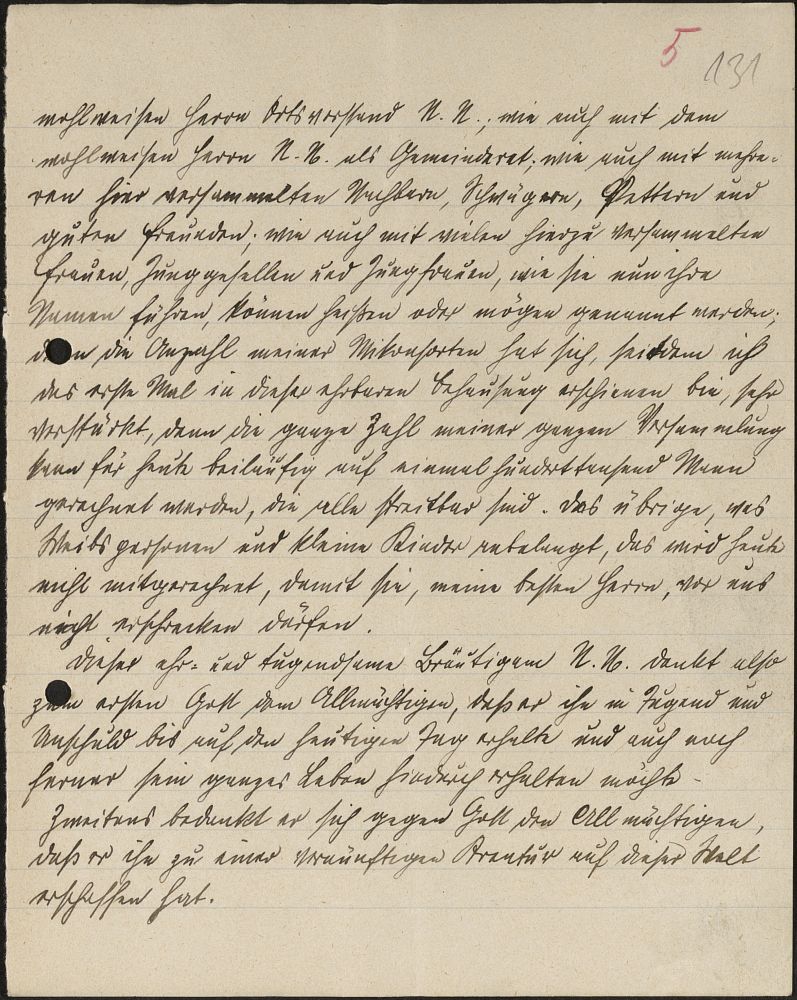 5 131
wohlweisen Herrn Ortsvorstand N. N.; wie auch mit dem
wohlweisen Herrn N. N. als Gemeinderat; wie auch mit mehre-
ren hier versammelten Nachbarn, Schwägern, Vettern und
guten Freunden; wie auch mit vielen hierzu versammelten
Frauen, Junggesellen und Jungfrauen, wie sie nun ihre
Namen führen, können heißen oder mögen genannt werden;
denn die Anzahl meiner Mitkonsorten hat sich, seitdem ich
das erste Mal in dieser ehrbaren Behausung erschienen bin, sehr
verstärkt, denn die ganze Zahl meiner ganzen Versammlung
kann für heute beiläufig auf einmal hunderttausend Mann
gerechnet werden, die alle streitbar sind. Das übrige, was
Weibspersonen und kleine Kinder anbelangt, das wird heute
nicht mitgerechnet, damit sie, meine besten Herrn, vor uns
nicht erschrecken dürfen.
Dieser ehr- und tugendsame Bräutigam N. N. dankt also
zum ersten Gott dem Allmächtigen, daß er ihn in Tugend und
Unschuld bis auf den heutigen Tag erhalte und auch noch
ferner sein ganzes Leben hindurch erhalten möchte -
Zweitens bedankt er sich gegen Gott den Allmächtigen,
daß er ihn zu einer vernünftigen Kreatur auf dieser Welt
erschaffen hat.